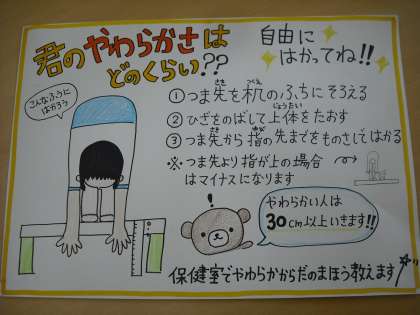 君のやわらかさは
どのくらい??
自由に
はかってね!!
こんなふうに
はかろう
①つま先を机のふちにそろえる
②ひざをのばして上体をたおす
③つま先から指の先までをものさしではかる
※つま先より指が上の場合
はマイナスになります
やわらかい人は
30cm以上いきます!!
保健室でやわらかからだのまほう教えます